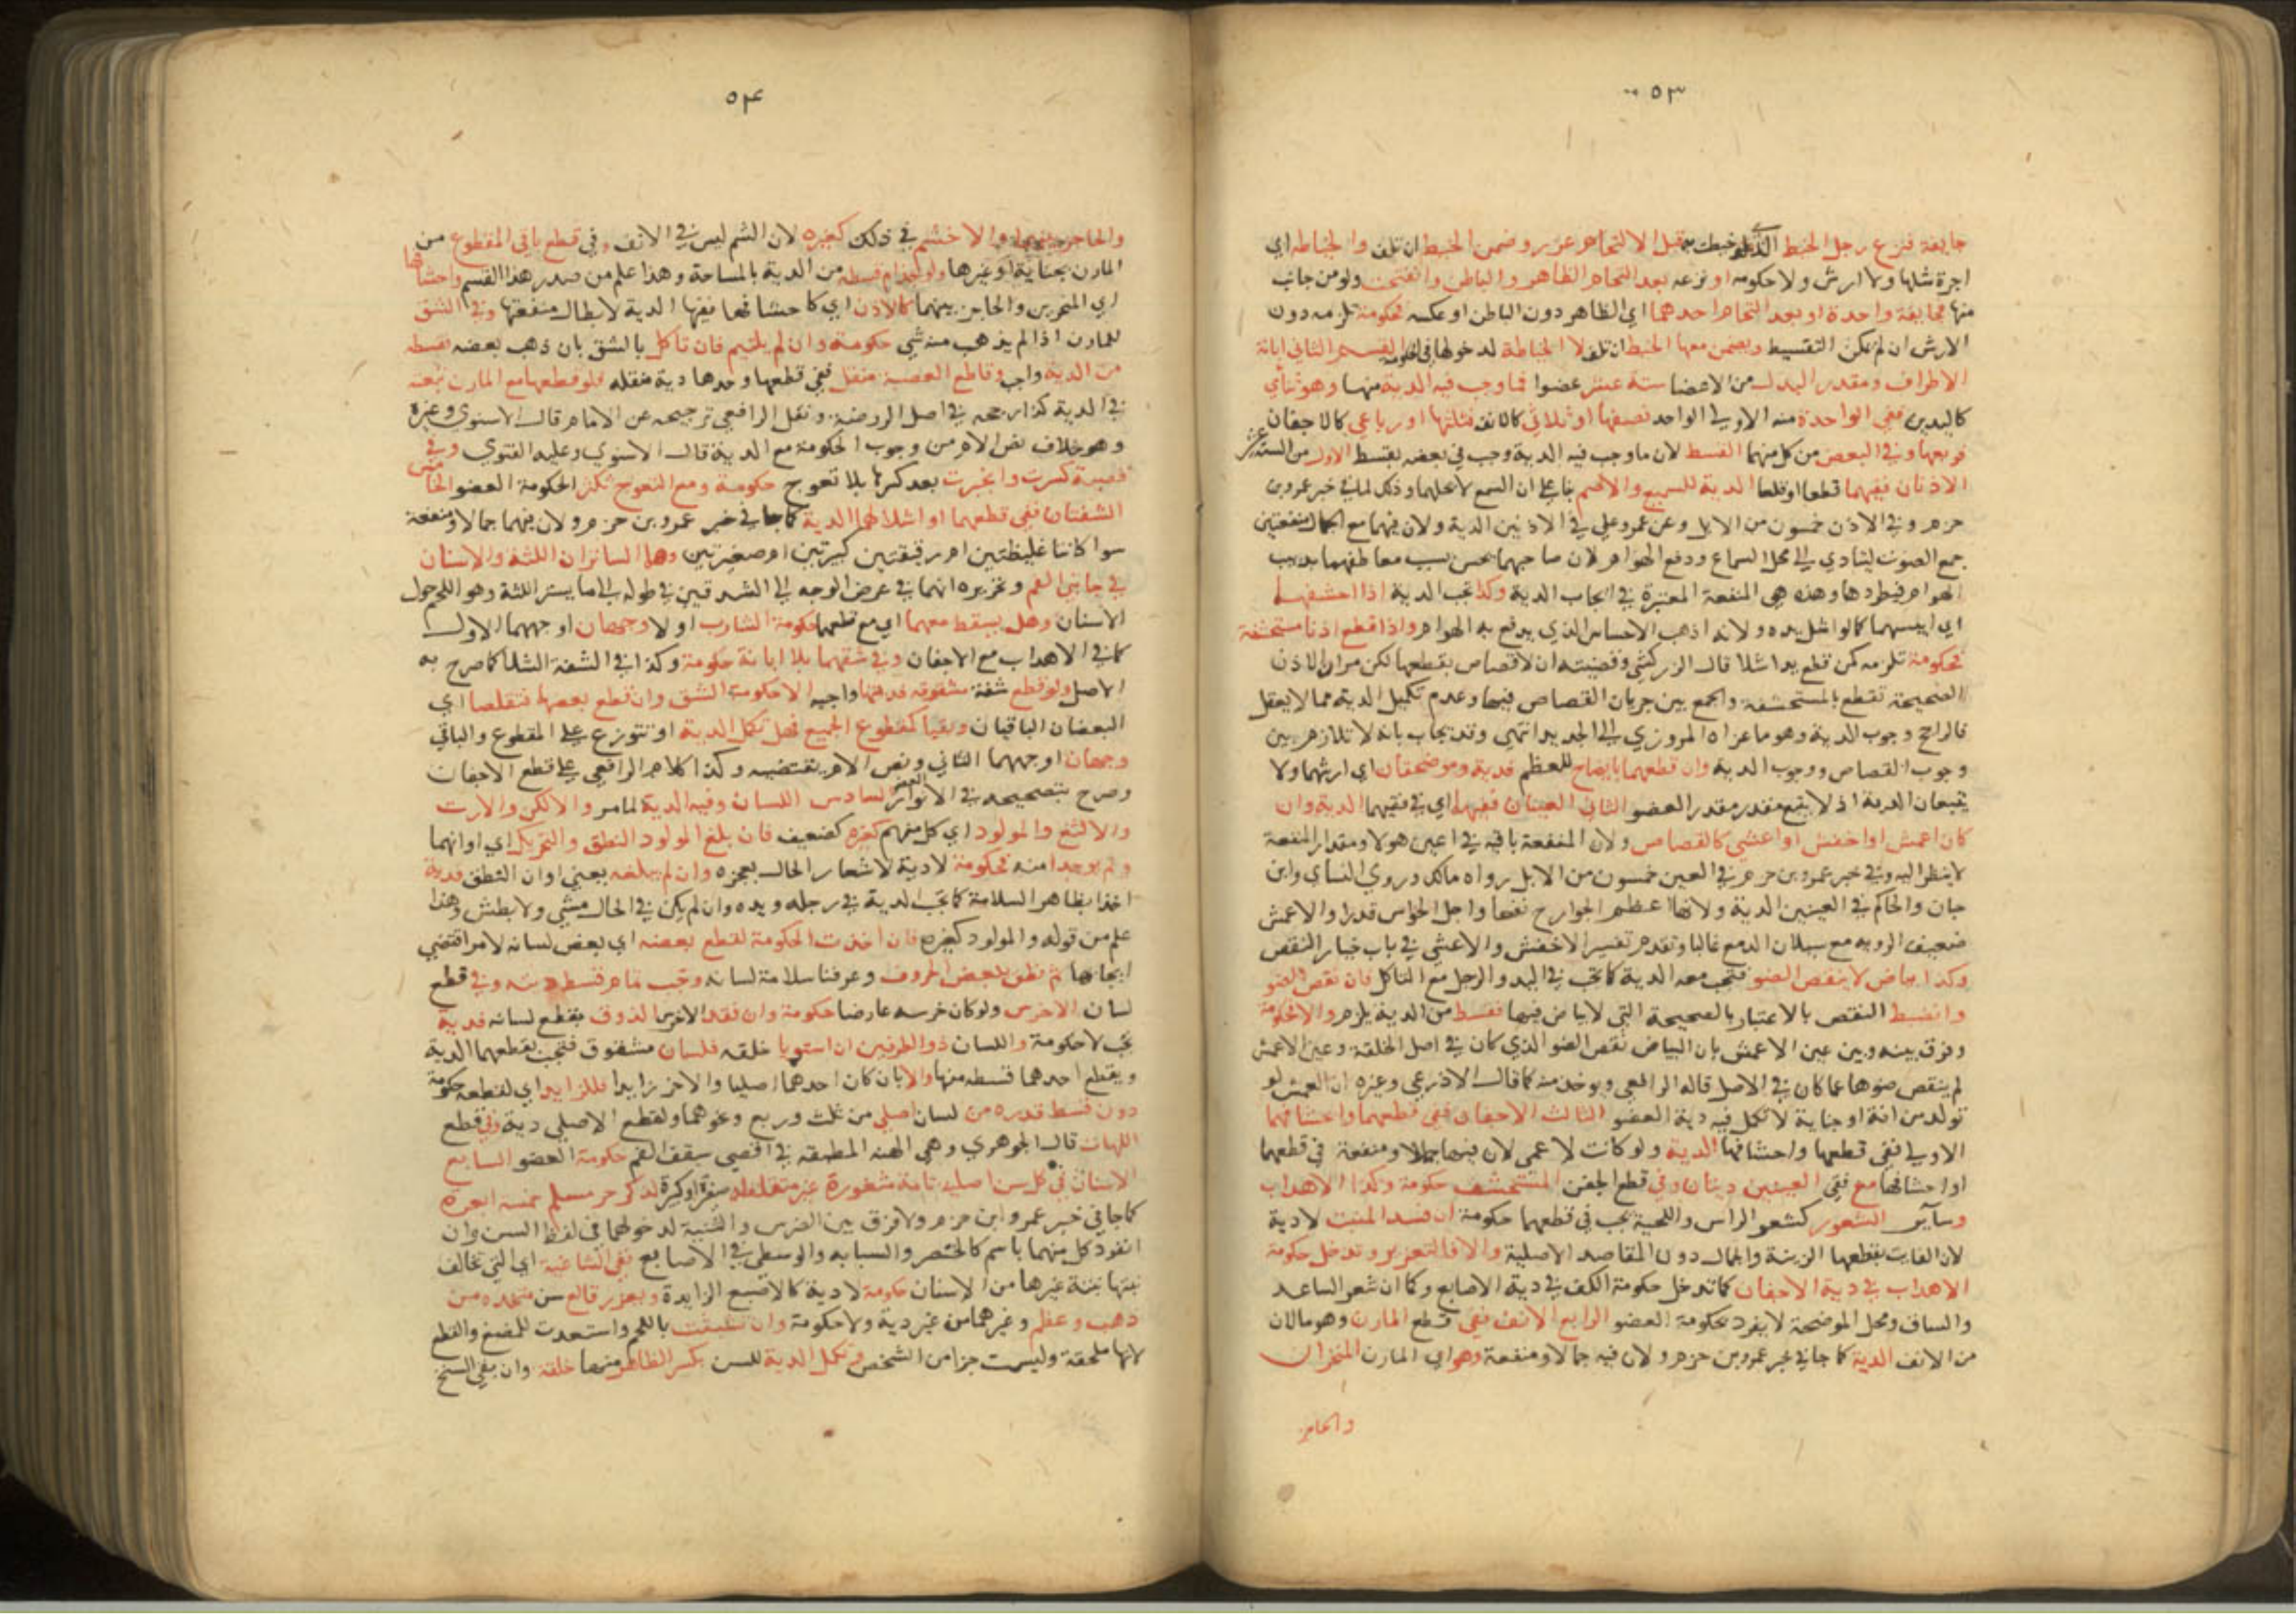 ٥٣
جايفة فنزع رجل الخيط الذي خيطت به قبل الالتحام عزر وضمن الخيط ان تلف والخياطة اي
اجرة مثلها ولا ارش ولا حكومة او نزعه بعد التحام الظاهر والباطن وانفتحت ولو من جانب
منها فجايفة واحدة او بعد التحام احدهما اي الظاهر دون الباطن او عكسه فحكومة تلزمه دون
الارش ان لم يمكن التقسيط ويضمن معها الخيط ان تلف لا الخياطة لدخولها في الحكومة القسم الثاني ابانة
الاطراف ومقدر البدل من الاعضا ستة عشر عضوا فما وجب فيه الدية منها وهو ثنائي
كاليدين ففي الواحدة منه الاولى الواحد نصفها او ثلاثي كالانف فثلثها او رباعي كالاجفان
فربعها وفي البعض من كل منهما القسط لان ما وجب فيه الدية وجب في بعضه بقسط الاول من الستة عشر
الاذنان ففيهما قطعا او قلعا الدية للسميع والاصم بنا على ان السمع لا يحلهما وذلك لما في خبر عمرو بن
حزم وفي الاذن خمسون من الابل وعن عمر وعلي في الاذنين الدية ولان فيهما مع الجمال منفعتين
جمع الصوت ليتادي الى محل السماع ودفع الهوام لان صاحبهما يحس بسبب معاطفهما بدبيب
الهوام فيطردها وهذه هي المنفعة المعتبرة في ايجاب الدية وكذا تجب الدية اذا احشفهما
اي ايبسهما كما لو اشل يده ولانه اذهب الاحساس الذي يدفع به الهوام واذا قطع اذنا مستحشفة
فحكومة تلزمه كمن قطع يدا شلا قال الزركشي وقضيته ان لا قصاص بقطعها لكن مر ان الاذن
الصحيحة تقطع بالمستحشفة والجمع بين جريان القصاص فيها وعدم تكميل الدية مما لا يعقل
فالراجح وجوب الدية وهو ما عزاه المروزي الى الجديد انتهى وقد يجاب بانه لا تلازم بين
وجوب القصاص ووجوب الدية وان قطعهما بايضاح للعظم فدية وموضحتان اي ارشهما ولا
يتبعان الدية اذ لا يتبع مقدر مقدر العضو الثاني العينان ففيهما اي في فقيهما الدية وان
كان اعمش او اخفش او اعشى كالقصاص ولان المنفعة باقية في اعين هولا ومقدار المنفعة
لا ينظر اليه وفي خبر عمرو بن حزم في العين خمسون من الابل رواه مالك وروي النساي وابن
حبان والحاكم في العينين الدية ولانها اعظم الجوارح نفعا واجل الحواس قدرا والاعمش
ضعيف الروية مع سيلان الدمع غالبا وتقدم تفسير الاخفش والاعشى في باب خيار النقص
وكذا بياض لا ينقص الضو فتجب معه الدية كما تجب في اليد والرجل مع التاكل فان نقص الضو
وانضبط النقص بالاعتبار بالصحيحة التي لا بياض فيها فقسط من الدية يلزم والا فحكومة
وفرق بينه وبين عين الاعمش بان البياض نقص الضو الذي كان في اصل الخلقة وعين الاعمش
لم ينقص ضوها عما كان في الاصل قاله الرافعي ويوخذ منه كما قال الاذرعي وغيره ان العمش لو
تولد من افة او جناية لا تكمل فيه دية العضو الثالث الاجفان ففي قطعهما واحشافها
الاولى ففي قطعها واحشافها الدية ولو كانت لاعمى لان فيها جمالا ومنفعة في قطعهما
او احشافها مع فقي العينين ديتان وفي قطع الجفن المستحشف حكومة وكذا الاهداب
وساير الشعور كشعر الراس واللحية يجب في قطعها حكومة ان فسد المنبت لا دية
لان الفايت بقطعها الزينة والجمال دون المقاصد الاصلية والا فالتعزير وتدخل حكومة
الاهداب في دية الاجفان كما تدخل حكومة الكف في دية الاصابع وكما ان شعر الساعد
والساق ومحل الموضحة لا يفرد بحكومة العضو الرابع الانف ففي قطع المارن وهو ما لان
من الانف الدية كما جا في خبر عمرو بن حزم ولان فيه جمالا ومنفعة وهو اي المارن المنخران
والحاجز
٥٤
والحاجز بينهما والاخشم في ذلك كغيره لان الشم ليس في الانف وفي قطع باقي المقطوع من
المارن بجناية او غيرها ولو بجذام قسطه من الدية بالمساحة وهذا علم من صدر هذا القسم واحشافها
اي المنخرين والحاجز بينهما كالاذن اي كاحشافها ففيها الدية لابطال منفعتها وفي الشق
للمارن اذا لم يذهب منه شي حكومة وان لم يلتيم فان تاكل بالشق بان ذهب بعضه فقسطه
من الدية واجب وقاطع القصبة منقل ففي قطعها وحدها دية منقله فلو قطعها مع المارن تبعته
في الدية كذا رجحه في اصل الروضة ونقل الرافعي ترجيحه عن الامام قال الاسنوي وغيره
وهو خلاف نص الام من وجوب الحكومة مع الدية قال الاسنوي وعليه الفتوي وفي
قصبة كسرت وانجبرت بعد كسرها بلا تعوج حكومة ومع التعوج تكثر الحكومة العضو الخامس
الشفتان ففي قطعهما او اشلالهما الدية كما جا في خبر عمرو بن حزم ولان فيهما جمالا ومنفعة
سوا كانتا غليظتين ام رقيقتين كبيرتين ام صغيرتين وهما الساتران اللثة والاسنان
في جانبي الفم وتحريره انهما في عرض الوجه الى الشدقين في طوله الى ما يستر اللثة وهو اللحم حول
الاسنان وهل يسقط معهما اي مع قطعهما حكومة الشارب او لا وجهان اوجههما الاول
كما في الاهداب مع الاجفان وفي شقهما بلا ابانة حكومة وكذا في الشفة الشلا كما صرح به
الاصل ولو قطع شفة مشقوقة فديتها واجبة الا حكومة الشق وان قطع بعضهما فتقلصا اي
البعضان الباقيان وبقيا كمقطوع الجميع فهل تكمل الدية او تتوزع على المقطوع والباقي
وجهان اوجههما الثاني ونص الام يقتضيه وكذا كلام الرافعي على قطع الاجفان
وصرح بتصحيحه في الانوار العضو السادس اللسان وفيه الدية لما مر والالكن والارت
والالثغ والمولود اي كل منهم كغيره كضعيف فان بلغ المولود النطق والتحريك اي اوانهما
ولم يوجدا منه فحكومة لا دية لاشعار الحال بعجزه وان لم يبلغه يعني اوان النطق فدية
اخذا بظاهر السلامة كما تجب الدية في رجله ويده وان لم يكن في الحال مشي ولا بطش وهذا
علم من قوله والمولود كغيره فان اخذت الحكومة لقطع بعضه اي بعض لسانه لامر اقتضي
ايجابها ثم نطق ببعض الحروف وعرفنا سلامة لسانه وجب تمام قسط ديته وفي قطع
لسان الاخرس ولو كان خرسه عارضا حكومة وان فقد الاخرس الذوق بقطع لسانه فدية
تجب لا حكومة واللسان ذو الطرفين ان استويا خلقه فلسان مشقوق فتجب بقطعهما الدية
وبقطع احدهما قسطه منها والا بان كان احدهما اصليا والاخر زايدا فللزايد اي لقطعه حكومة
دون قسط قدره من لسان اصلي من ثلث وربع ونحوهما ولقطع الاصلي دية وفي قطع
اللهات قال الجوهري وهي الهنة المطبقة في اقصي سقف الفم حكومة العضو السابع
الاسنان في كل سن اصلية تامة مثغورة غير متقلقلة صغيرة او كبيرة لذكر حر مسلم خمسة ابعرة
كما جا في خبر عمرو ابن حزم ولا فرق بين الضرس والثنية لدخولهما في لفظ السن وان
انفرد كل منهما باسم كالخنصر والسبابة والوسطى في الاصابع ففي الشاغية اي التي تخالف
نبتها نبتة غيرها من الاسنان حكومة لا دية كالاصبع الزايدة ويعزر قالع سن متخذه من
ذهب وعظم وغيرهما من غير دية ولا حكومة وان تشبثت باللحم واستعدت للمضغ والقطع
لانها ملحقة وليست جزا من الشخص وتكمل الدية للسن بكسر الظاهر منها خلقة وان بقي السنخ